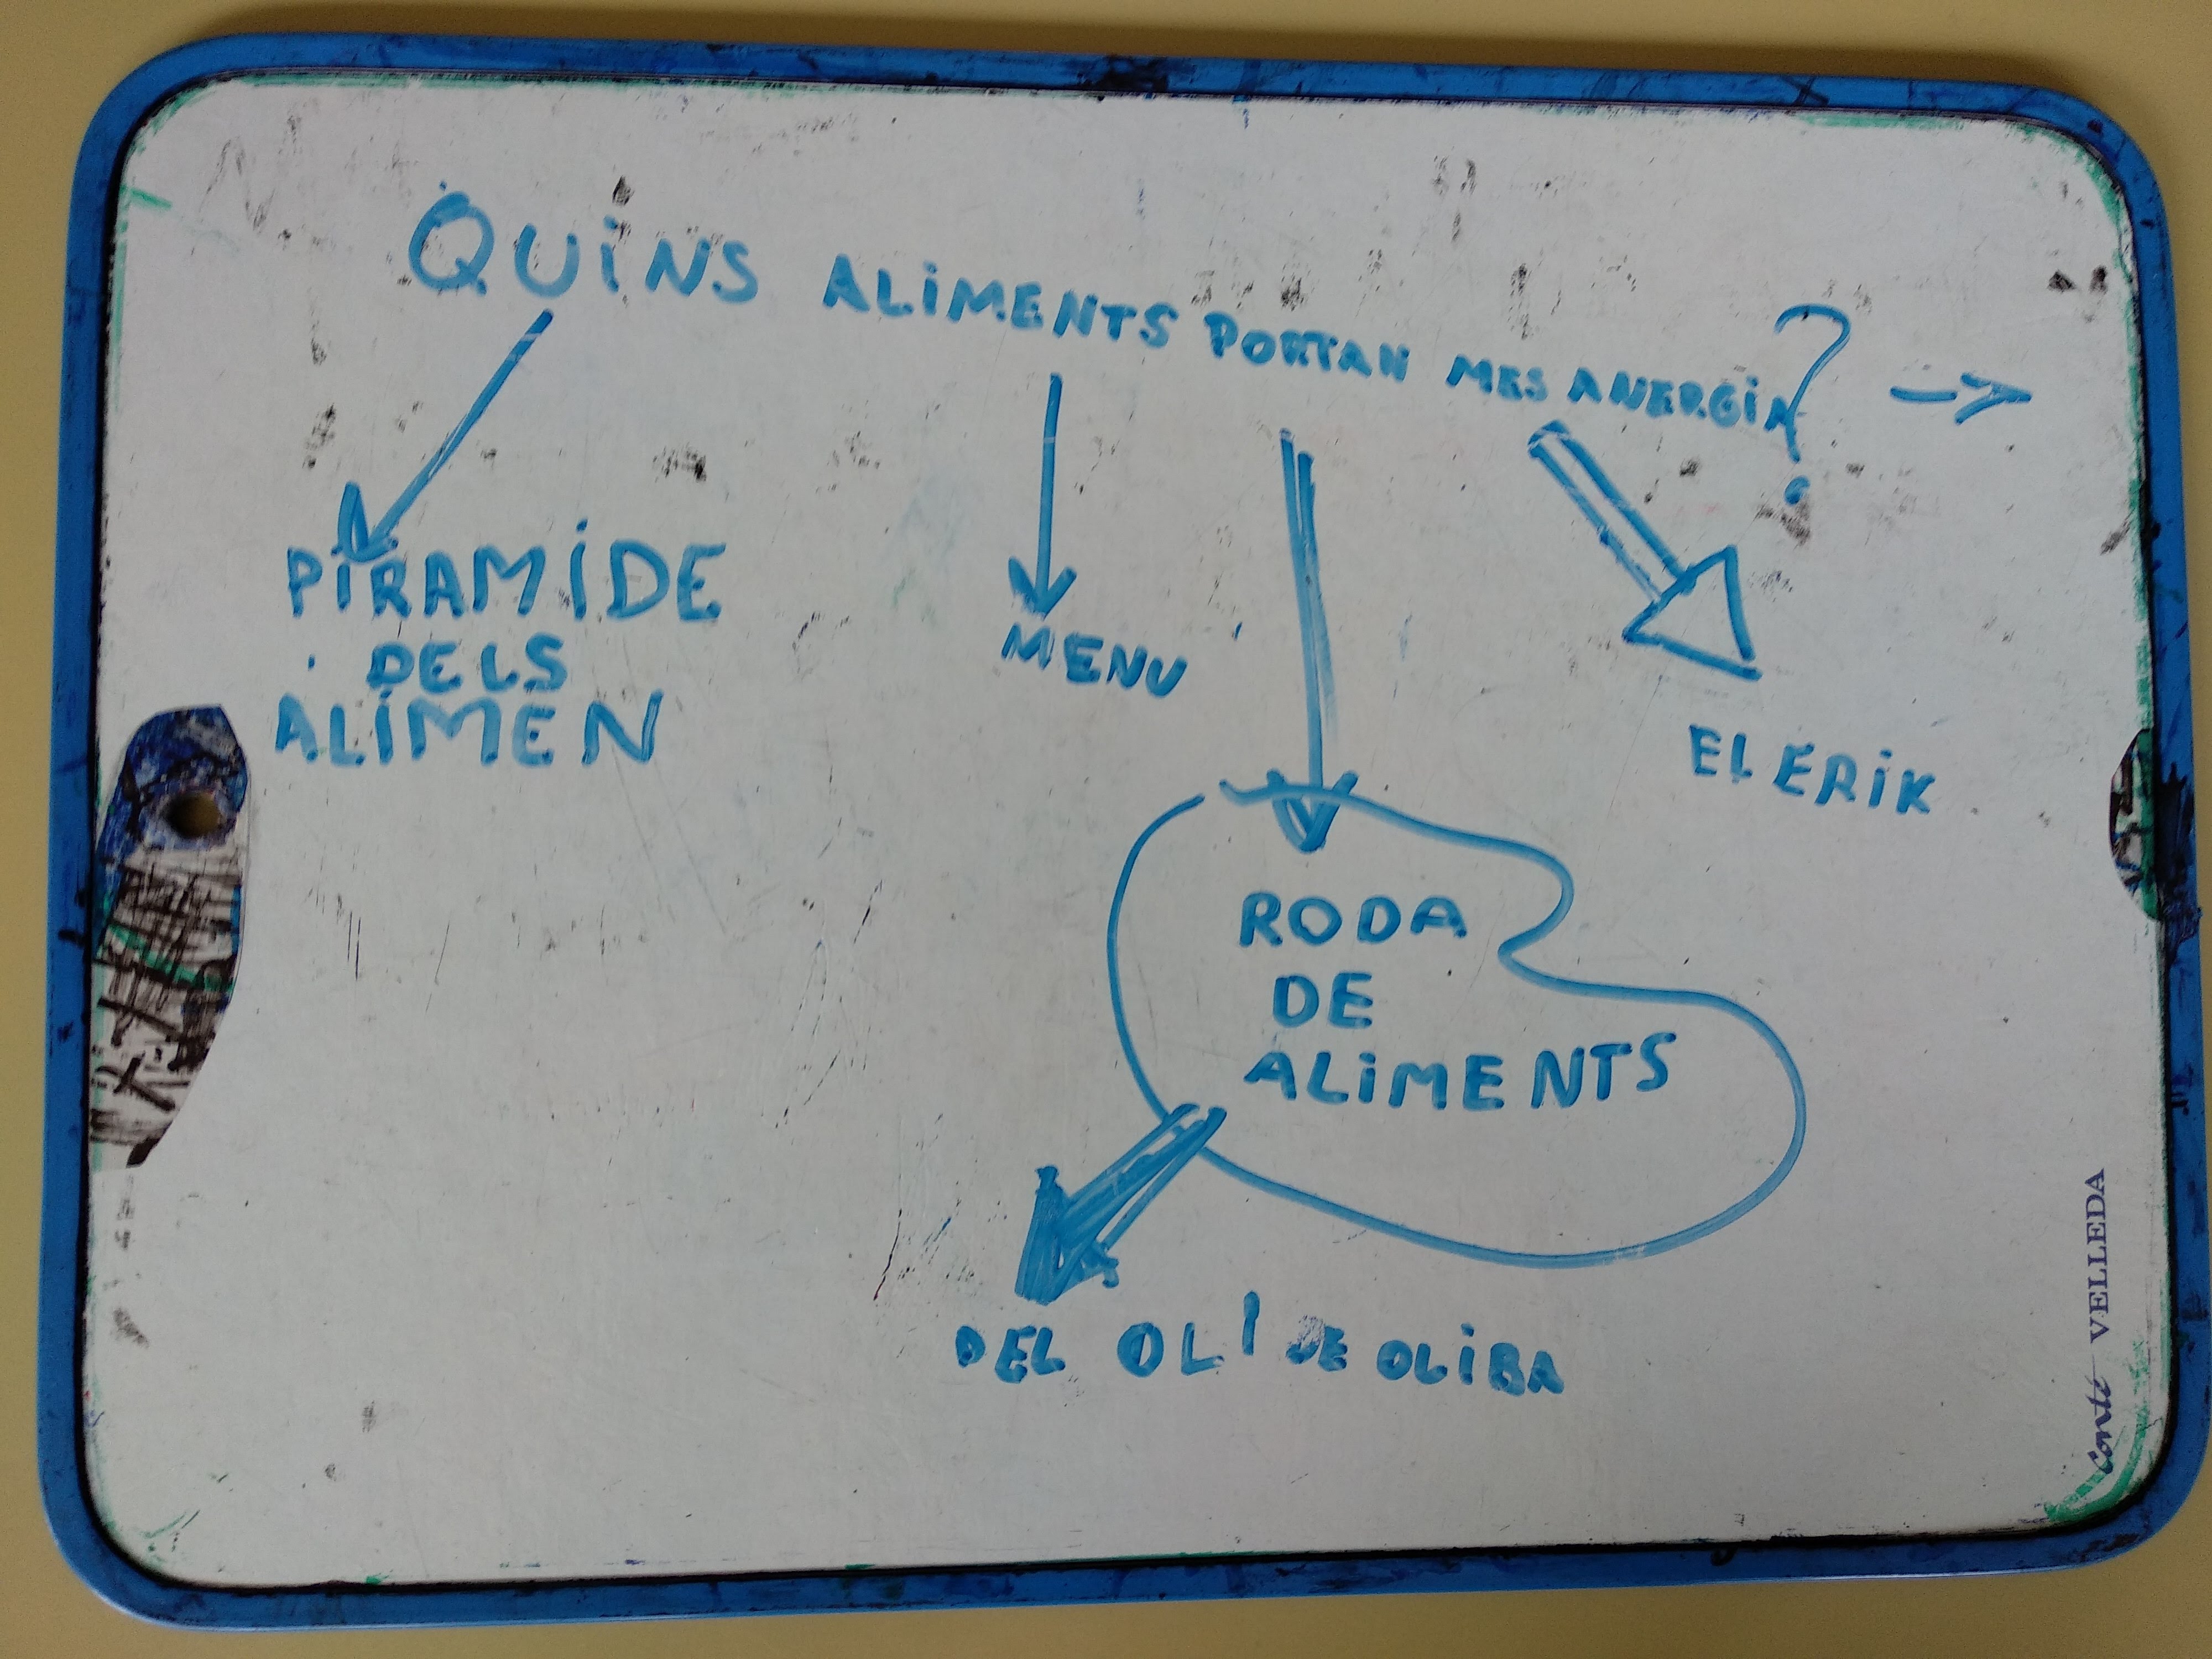 QUiNS ALiMENTS PORTAN MES ANERGiA? ->
PiRAMiDE
DELS
ALiMEN
MENU
EL ERiK
RODA
DE
ALiMENTS
DEL OLI DE OLiBA
conté VELLEDA